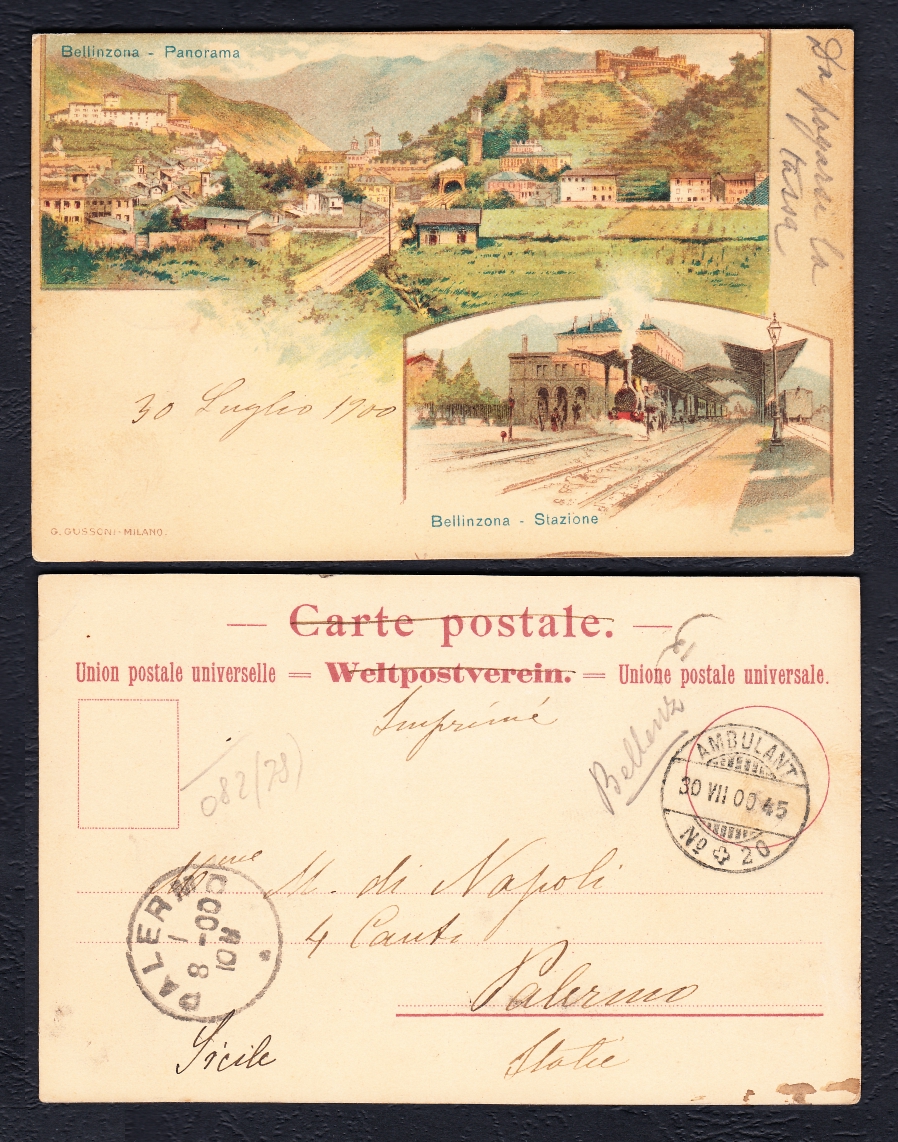 Bellinzona - Panorama
Da pagare la
tassa
30 Luglio 1900
Bellinzona - Stazione
G. GUSSONI - MILANO.
— Carte postale. —
Union postale universelle = Weltpostverein. = Unione postale universale.
Imprimé
Bellenz
082 (78)
AMBULANT
30 VII 00 45
No 20
Mme M. di Napoli
4 Canti
Palermo
Sicile
Italie
PALERMO
1 8 - 00
10 R